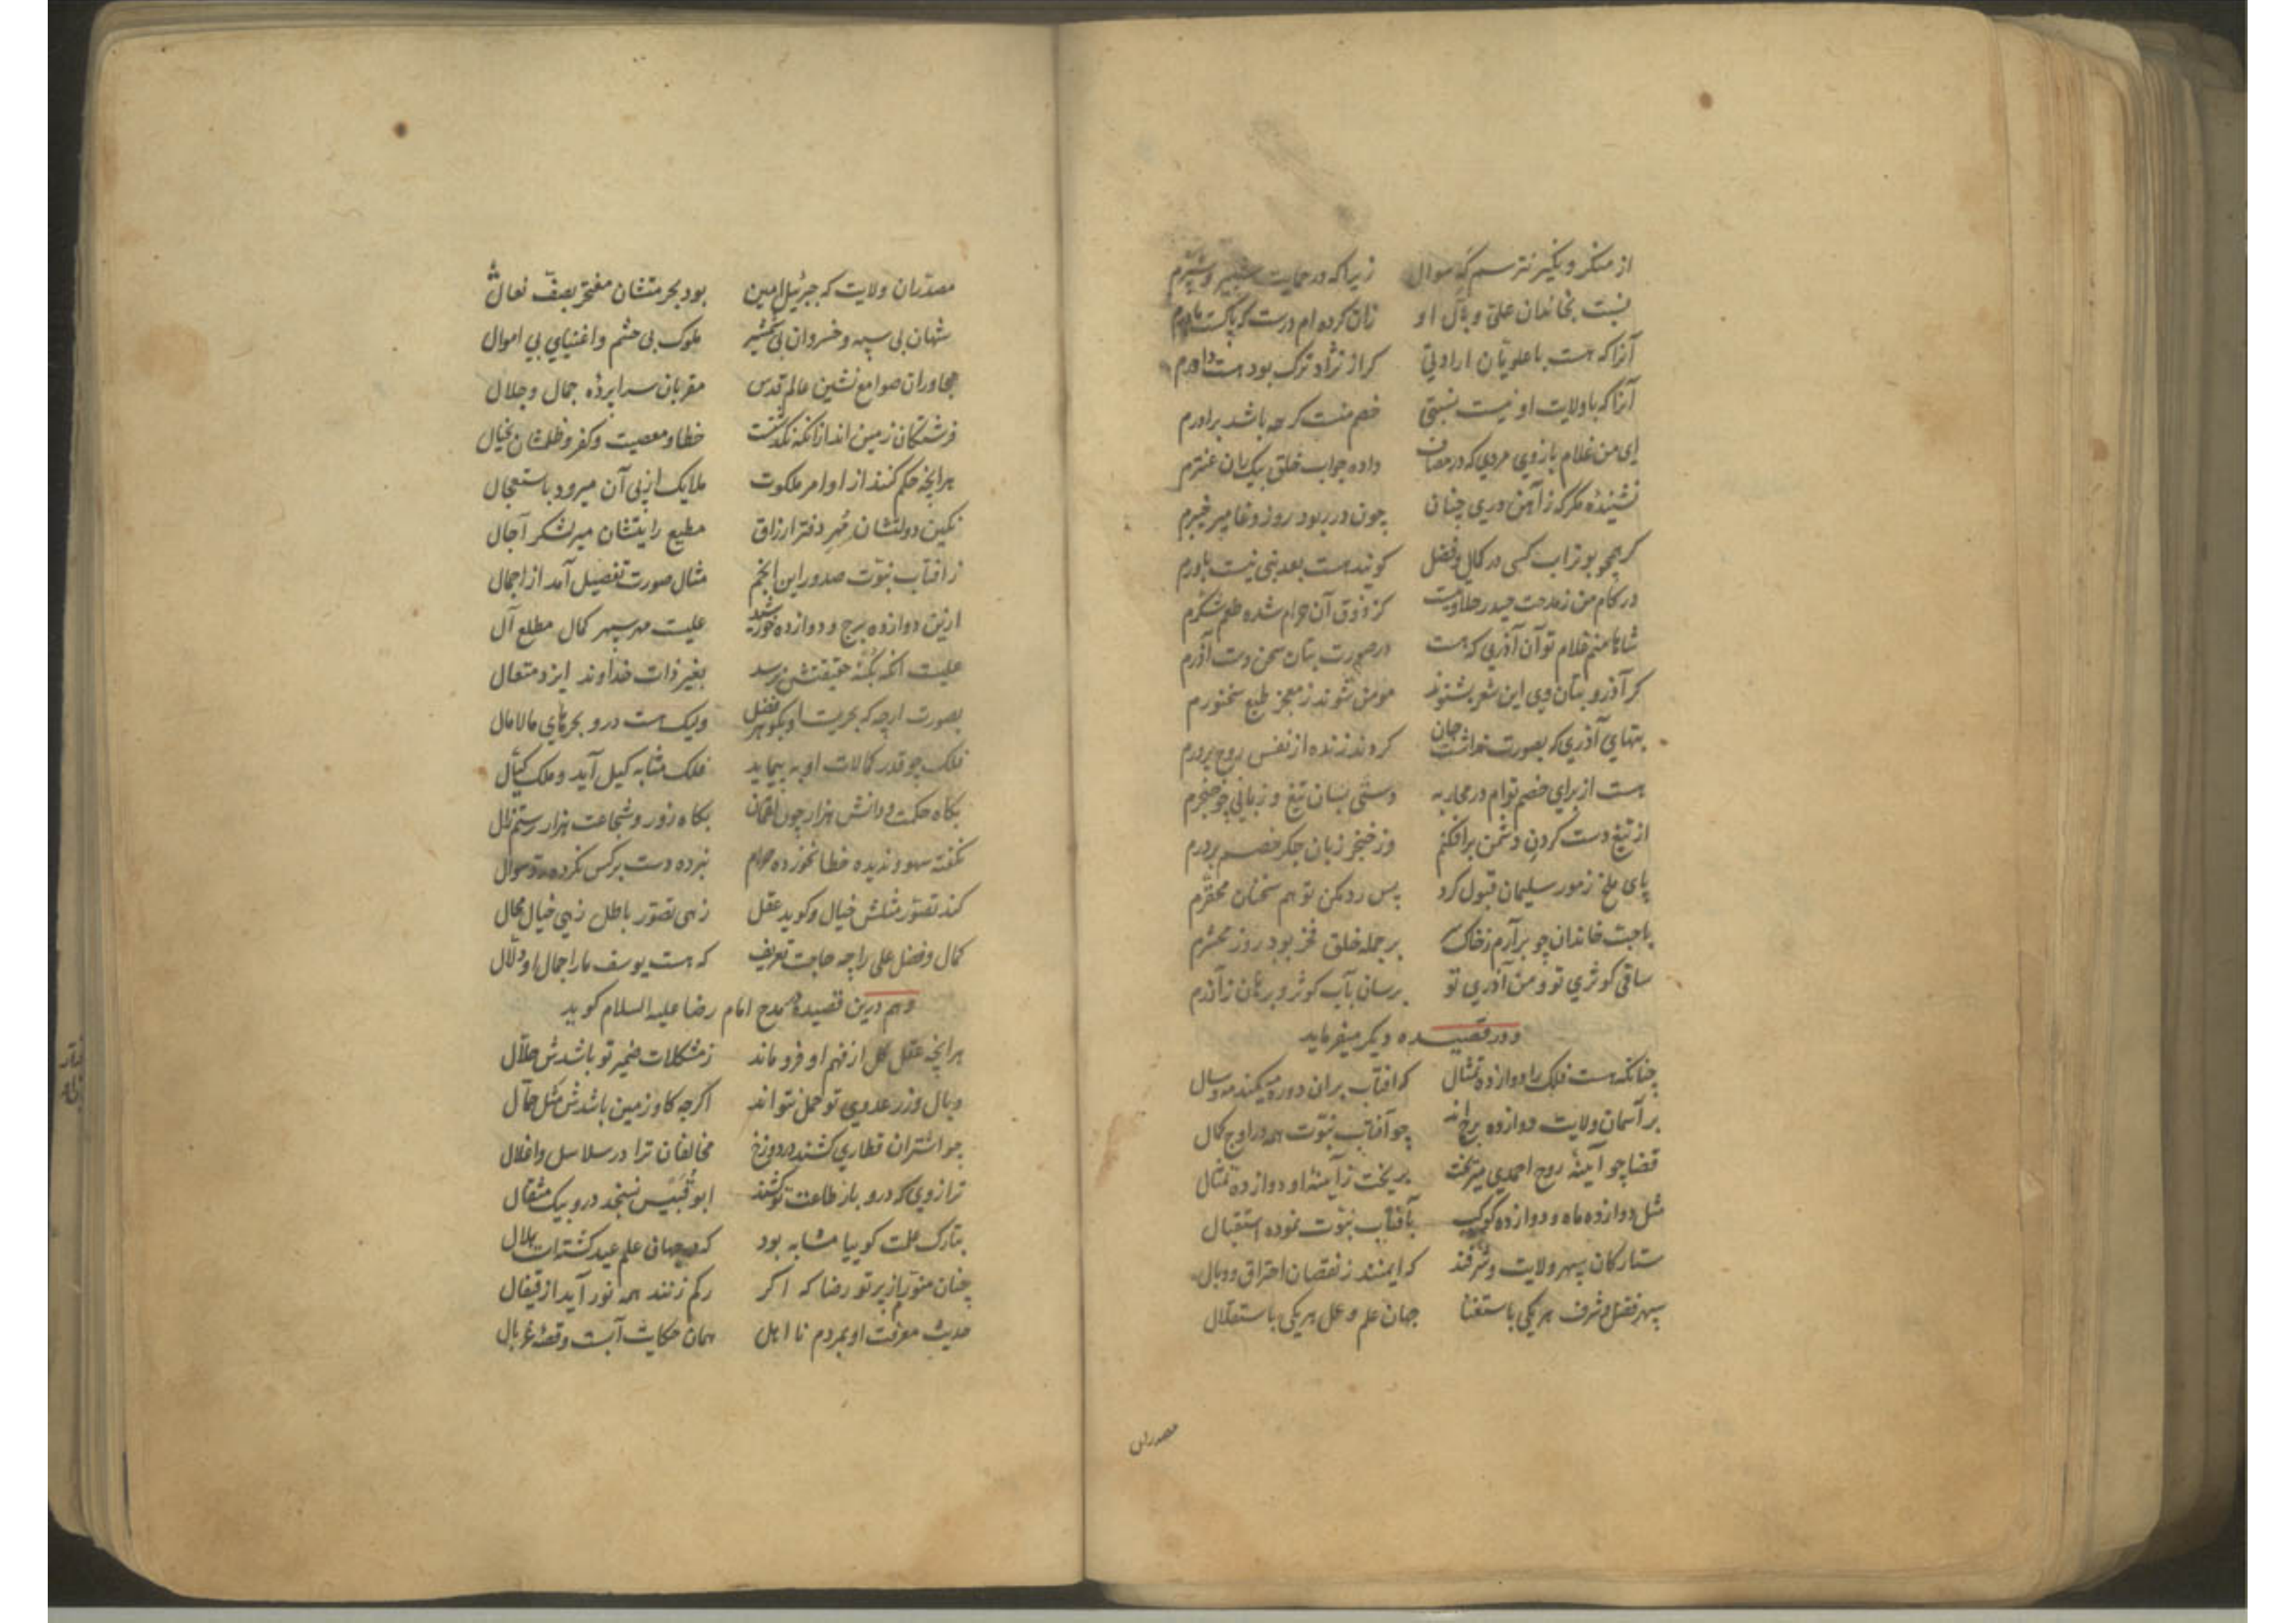 از منکر و نکیر نترسم که سوال زیرا که در حمایت شبیر و شبرم
نسبت بخاندان علی و بآل او زان کرده ام درست که پاکست مادرم
آنرا که هست با علویان ارادتی کر از نژاد ترک بود هست داورم
آنرا که با ولایت او نیست نسبتی خصم منست کرچه باشد برادرم
ای من غلام بازوی مردی که در مصاف داده جواب خلق بیک نان عنترم
نشنیدۀ مکر که ز آهن دری چنان چون در ربود روز وغا میر خیبرم
کر همچو بوتراب کسی در کمال و فضل کویند هست بعد نبی نیست باورم
در کام من ز مدحت حیدر حلاوتیست کز ذوق آن حرام شده طعم شکرم
شاها منم غلام تو آن آذری که هست در صورت بتان سخن دست آذرم
کر آذر و بتان وی این شعر بشنوند مومن شوند ز معجز طبع سخنورم
بتهای آذری که بصورت نداشت جان کردند زنده از نفس روح پرورم
هست از برای خصم توام در محاربه دستی بسان تیغ و زبانی چو خنجرم
از تیغ دست کردن دشمن برافکنم وز خنجر زبان جکر خصم بردرم
پای ملخ ز مور سلیمان قبول کرد پس رد مکن تو هم سخنان محقرم
با حب خاندان چو برآرم ز خاک سر بر جمله خلق فخر بود روز محشرم
ساقی کوثری تو و من آذری تو برسان بآب کوثر و برهان ز آذرم
و در قصیده دیکر میفرماید
چنانکه هست فلک را دوازده تمثال که افتاب بران دوره میکند مه و سال
بر آسمان ولایت دوازده برج اند چو آفتاب نبوت همه در اوج کمال
قضا چو آینۀ روح احمدی میریخت بریخت ز آینۀ او دوازده تمثال
مثل دوازده ماه و دوازده کوکب بآفتاب نبوت نموده استقبال
ستارکان سپهر ولایت و شرفند که ایمنند ز نقصان احتراق و وبال
سپهر فضل و شرف هر یکی باستغنا جهان علم و عمل هر یکی باستقلال
مصدران
مصدران ولایت که جبرئیل امین بود بحرمتشان مفتخر بصف نعال
شهان بی سپه و خسروان بی شمشیر ملوک بی حشم و اغنیای بی اموال
مجاوران صوامع نشین عالم قدس مقربان سراپردۀ جمال و جلال
فرشتکان زمین اند ازانکه نکذشت خطا و معصیت و کفر و ظلمشان بخیال
هرانچه حکم کنند از اوامر ملکوت ملایک از پی آن میرود باستعجال
نکین دولتشان مُهرِ دفتر ارزاق مطیع رایتشان میر لشکر آجال
ز افتاب نبوت صدور این انجم مثال صورت تفصیل آمد از اجمال
ازین دوازده برج و دوازده خورشید علیست مهر سپهر کمال مطلع آل
علیست آنکه بکُنه حقیقتش نرسد بغیر ذات خداوند ایزد متعال
بصورت ارچه که بحریست او بکوهر فضل ولیک هست درو بحرهای مالامال
فلک چو قدر کمالات او به پیماید فلک مشابه کیل آید و ملک کیّال
بکاه حکمت و دانش هزار چون لقمان بکاه زور و شجاعت هزار رستم زال
نکفته سهو و ندیده خطا نخورده حرام نبرده دست برکس نکرده سوال
کند تصور مثلش خیال و کوید عقل زهی تصور باطل زهی خیال محال
کمال و فضل علی را چه حاجت تعریف که هست یوسف ما را جمال او دلال
و هم درین قصیده مدح امام رضا علیه السلام کوید
هرانچه عقل کل از فهم او فرو ماند ز مشکلات ضمیر تو باشدش حلّال
وبال وزر عدوی تو حمل نتواند اکرچه کاو زمین باشدش مثل حمّال
چو اشتران قطاری کشند در دوزخ مخالفان ترا در سلاسل و اغلال
ترازوی که درو بار طاعت تو کشند ابو قُبَیس نسنجد درو بیک مثقال
بتارک علمت کوییا مشابه بود که در جهان علم عید کشته است هلال
چنان منورم از پرتو رضا که اکر رکم زنند همه نور آید از قیفال
حدیث معرفت او بمردم نا اهل همان حکایت آبست و قصۀ غربال